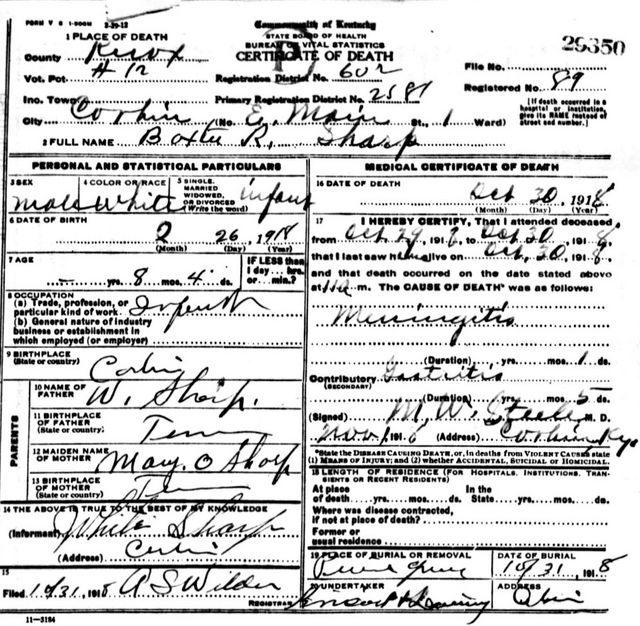 FORM V S 1-500M 2-29-12
Commonwealth of Kentucky
STATE BOARD OF HEALTH
BUREAU OF VITAL STATISTICS
CERTIFICATE OF DEATH
29350
1 PLACE OF DEATH
County Knox
Vot. Pct # 12
Registration District No. 602
File No.
Inc. Town
Primary Registration District No. 2581
Registered No. 89
City Corbin (No. E. Main St., 1 Ward)
[If death occurred in a hospital or institution, give its NAME instead of street and number.]
2 FULL NAME Baxter R. Sharp
PERSONAL AND STATISTICAL PARTICULARS
3 SEX Male
4 COLOR OR RACE White
5 SINGLE, MARRIED WIDOWED, OR DIVORCED (Write the word) Infant
6 DATE OF BIRTH
2 26, 1918
(Month) (Day) (Year)
7 AGE
- yrs. 8 mos. 4 ds.
IF LESS than 1 day... hrs. or... min.?
8 OCCUPATION
(a) Trade, profession, or particular kind of work
(b) General nature of industry business or establishment in which employed (or employer)
9 BIRTHPLACE (State or country) Corbin
PARENTS
10 NAME OF FATHER W. Sharp.
11 BIRTHPLACE OF FATHER (State or country) Tenn
12 MAIDEN NAME OF MOTHER Mary O Sharp
13 BIRTHPLACE OF MOTHER (State or country) Tenn
14 THE ABOVE IS TRUE TO THE BEST OF MY KNOWLEDGE
(Informant) White Sharp
(Address) Corbin
15
Filed 10/31, 1918 A S Wilder
REGISTRAR
11-3184
MEDICAL CERTIFICATE OF DEATH
16 DATE OF DEATH Oct 30, 1918
(Month) (Day) (Year)
17 I HEREBY CERTIFY, That I attended deceased
from Oct. 29, 1918, to Oct 30, 1918,
that I last saw h alive on Oct, 30, 1918,
and that death occurred on the date stated above
at m. The CAUSE OF DEATH* was as follows:
Meningitis
(Duration) yrs. mos. 1 ds.
Contributory (SECONDARY) Gastritis
(Duration) yrs. mos. 5 ds.
(Signed) M. W. Steele, M. D.
Nov 1, 1918 (Address) Corbin Ky.
*State the DISEASE CAUSING DEATH, or, in deaths from VIOLENT CAUSES state (1) MEANS OF INJURY; and (2) whether ACCIDENTAL, SUICIDAL or HOMICIDAL.
18 LENGTH OF RESIDENCE (FOR HOSPITALS, INSTITUTIONS, TRANSIENTS OR RECENT RESIDENTS)
At place of death yrs. mos. ds. In the State yrs. mos. ds.
Where was disease contracted, if not at place of death?
Former or usual residence
19 PLACE OF BURIAL OR REMOVAL
DATE OF BURIAL
10/31, 1918
20 UNDERTAKER
ADDRESS